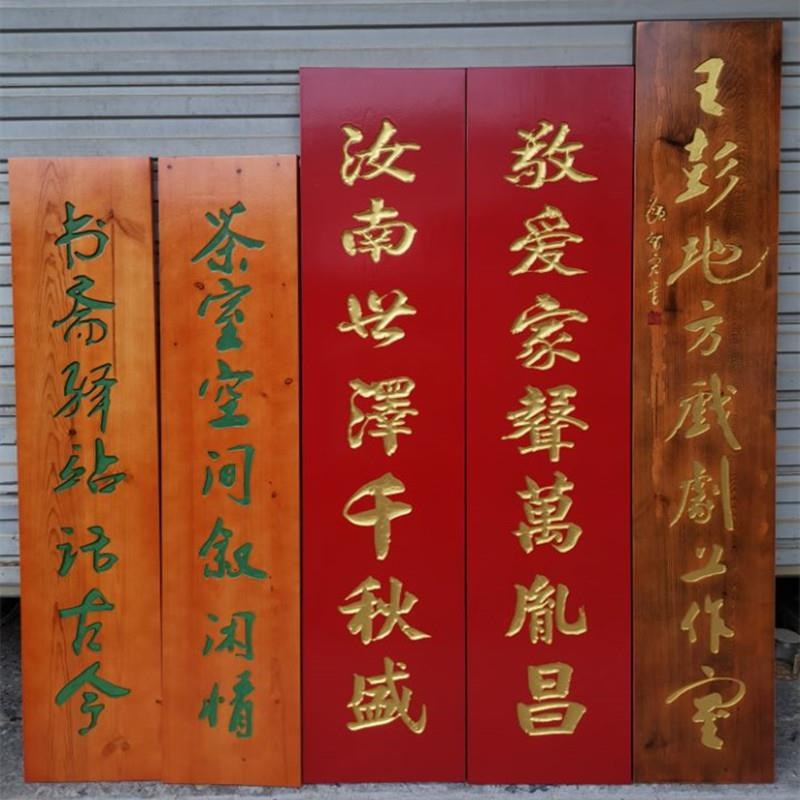 书斋驿站话古今
茶室空间叙闲情
汝南世澤千秋盛
敬爱家聲萬胤昌
王彭地方戲劇工作室